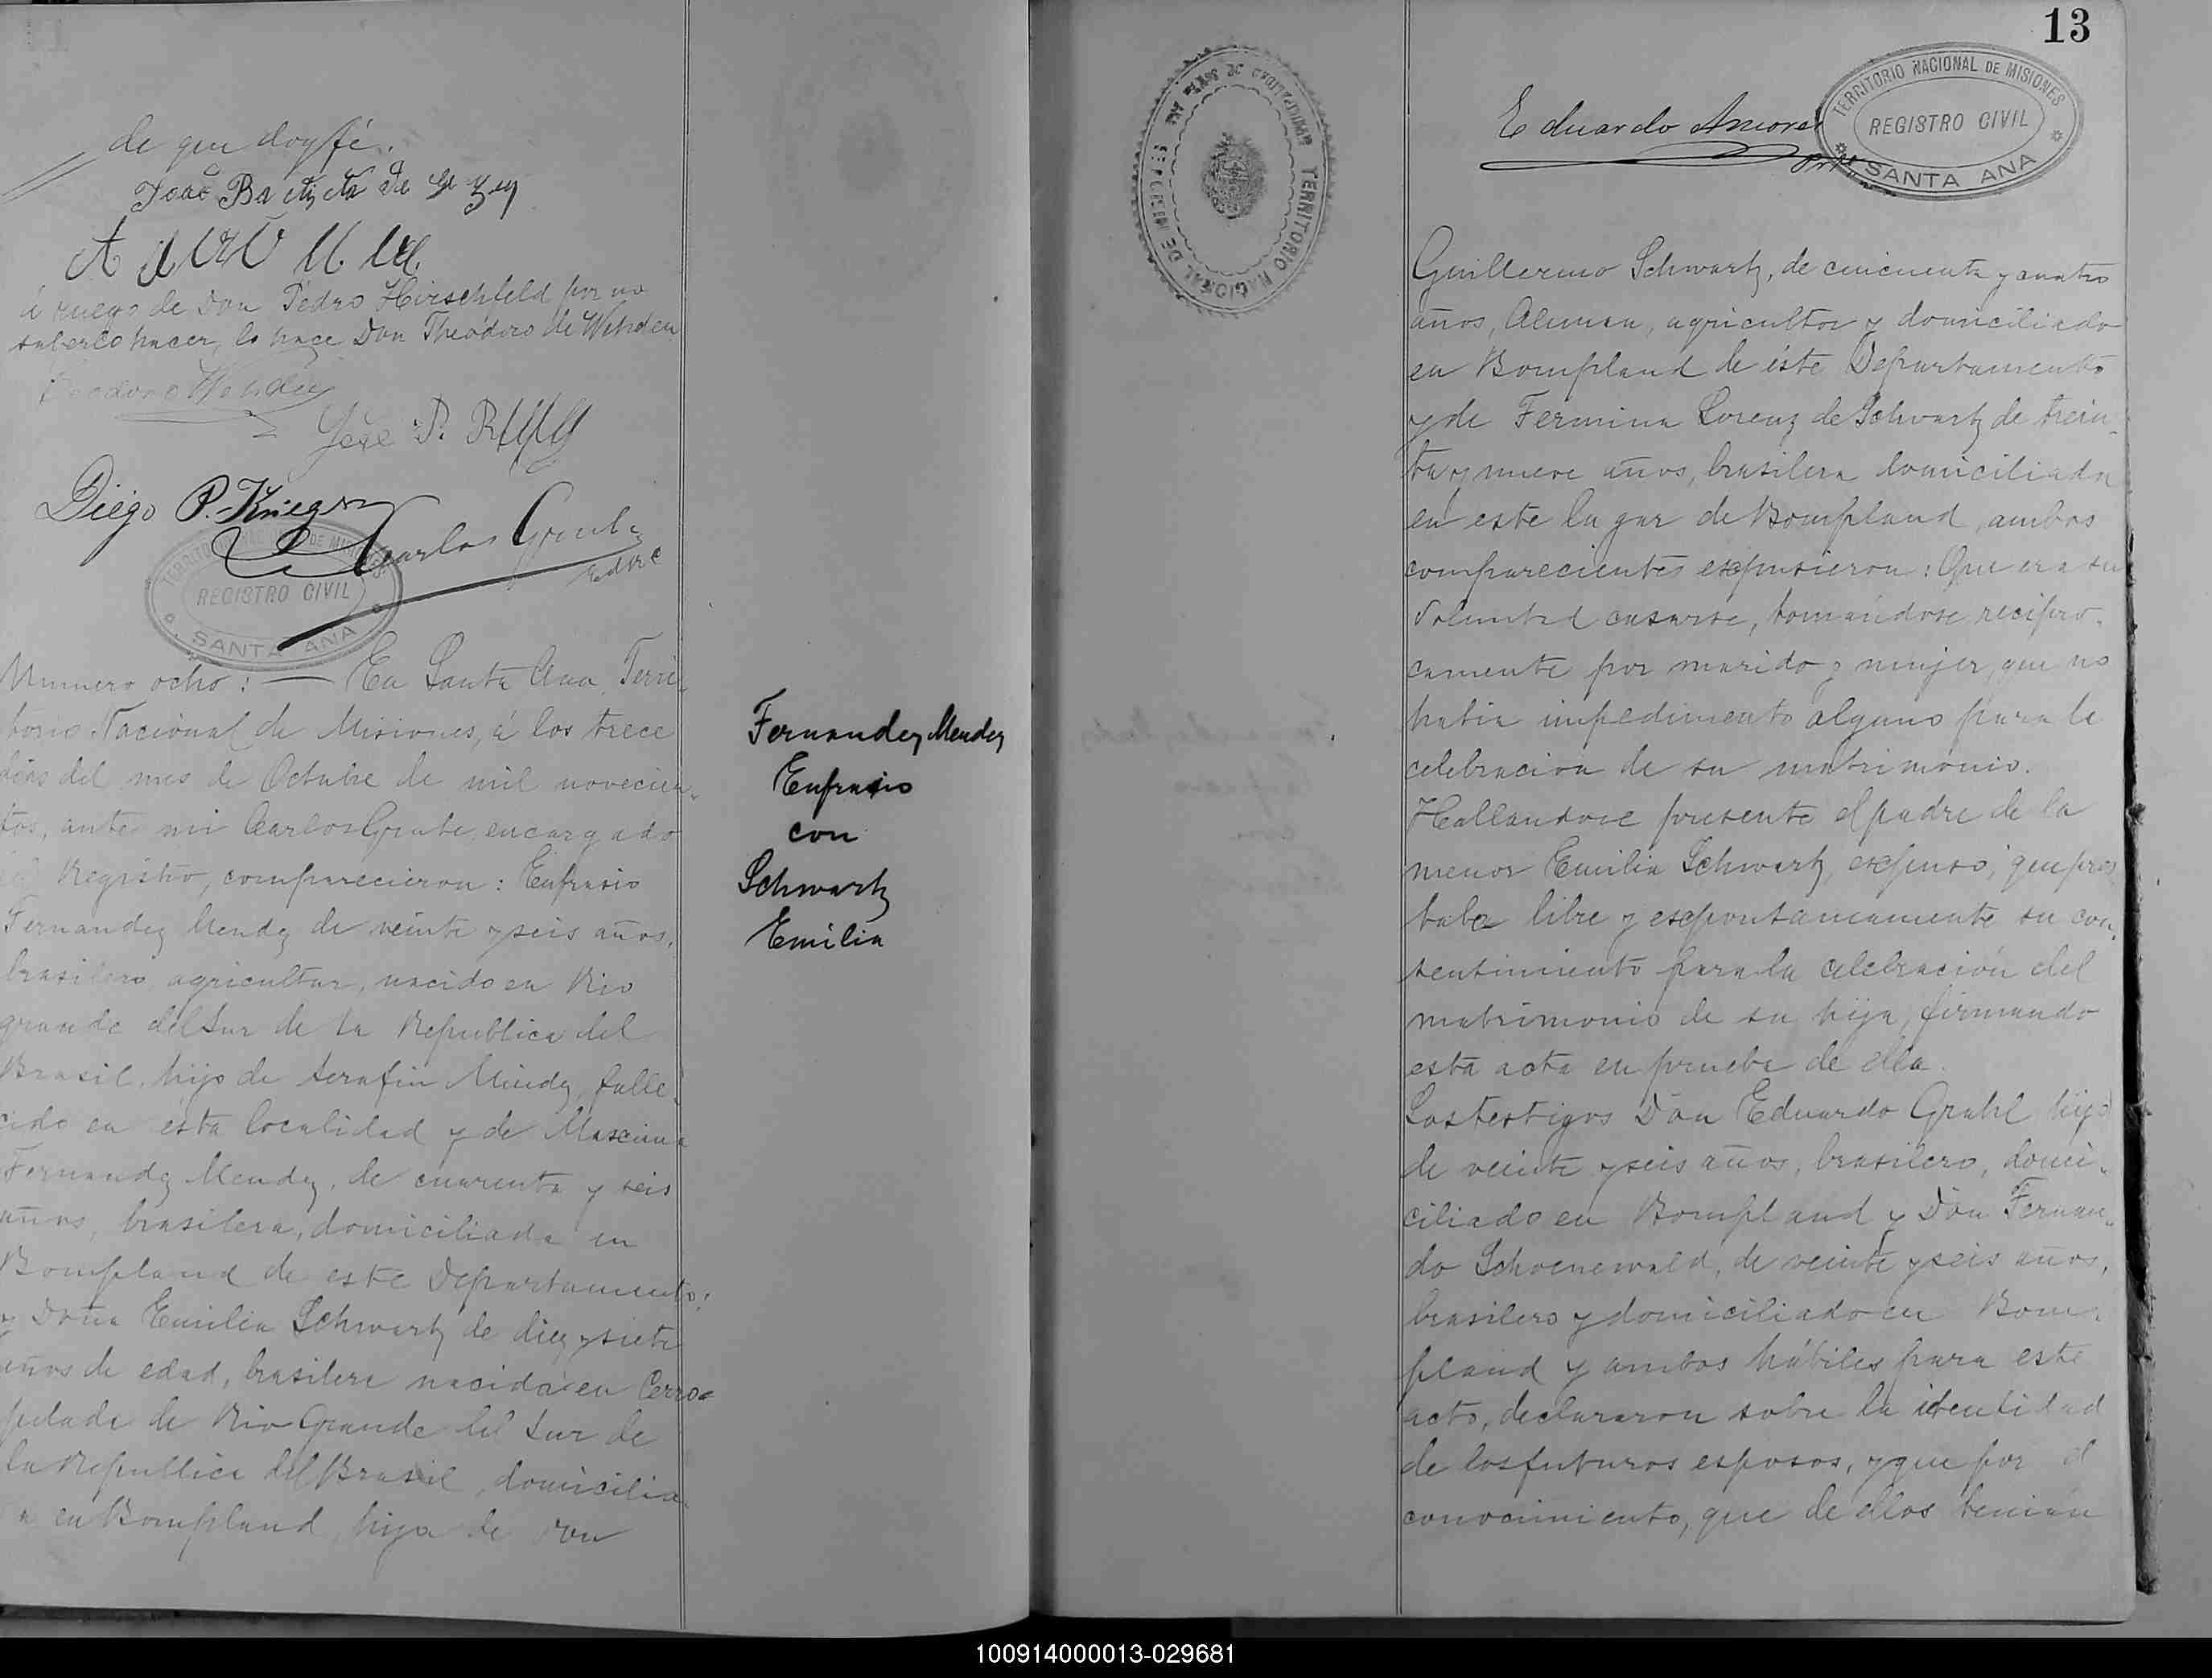 de que doy fé.
João Baptista de
á ruego de Don Pedro Hirschfeld por no
saberlo hacer, lo hace Don Theodoro de Wehden
Teodoro Wehden
José P.
Diego P. Krieger
Carlos Grule
TERRITORIO NACIONAL DE MISIONES
REGISTRO CIVIL
SANTA ANA
Numero ocho: — En Santa Ana, Terri-
torio Nacional de Misiones, á los trece
dias del mes de Octubre de mil novecien-
tos, ante mi Carlos Grule, encargado
del Registro, comparecieron: Eufrasio
Fernandez Mendez de veinte y seis años,
brasilero, agricultor, nacido en Rio
grande del Sur de la Republica del
Brasil, hijo de Serafin Mindez, falle-
cido en ésta localidad y de Maxima
Fernandez Mendez, de cuarenta y seis
años, brasilera, domiciliada en
Bompland de este Departamento;
y Doña Emilia Schwartz de diez y siete
años de edad, brasilera nacida en Cerro-
pelado de Rio Grande del Sur de
la Republica del Brasil, domicilia-
da en Bompland, hija de Don
Fernandez Mendez
Eufracio
con
Schwartz
Emilia
13
TERRITORIO NACIONAL DE MISIONES
REGISTRO CIVIL
SANTA ANA
Eduardo Amores
TERRITORIO NACIONAL DE MISIONES
MUNICIPALIDAD DE SANTA ANA
Guillermo Schwartz, de cincuenta y cuatro
años, Aleman, agricultor y domiciliado
en Bompland de éste Departamento
y de Fermina Lorenz de Schwartz de trein-
ta y nueve años, brasilera domiciliada
en este lugar de Bompland, ambos
comparecientes expusieron: Que era su
voluntad casarse, tomandose recipro-
camente por marido y mujer, que no
habia impedimento alguno para la
celebracion de su matrimonio.
Hallandose presente el padre de la
menor Emilia Schwartz, expuso, que pres
taba libre y expontaneamente su con-
sentimiento para la celebración del
matrimonio de su hija, firmando
esta acta en prueba de ella.
Los testigos Don Eduardo Grahl hijo
de veinte y seis años, brasilero, domi-
ciliado en Bompland y Don Fernan-
do Schoenewald, de veinte y seis años,
brasilero y domiciliado en Bom-
pland y ambos hábiles para este
acto, declararon sobre la identidad
de los futuros esposos, y que por el
conocimiento, que de ellos tenian
100914000013-029681